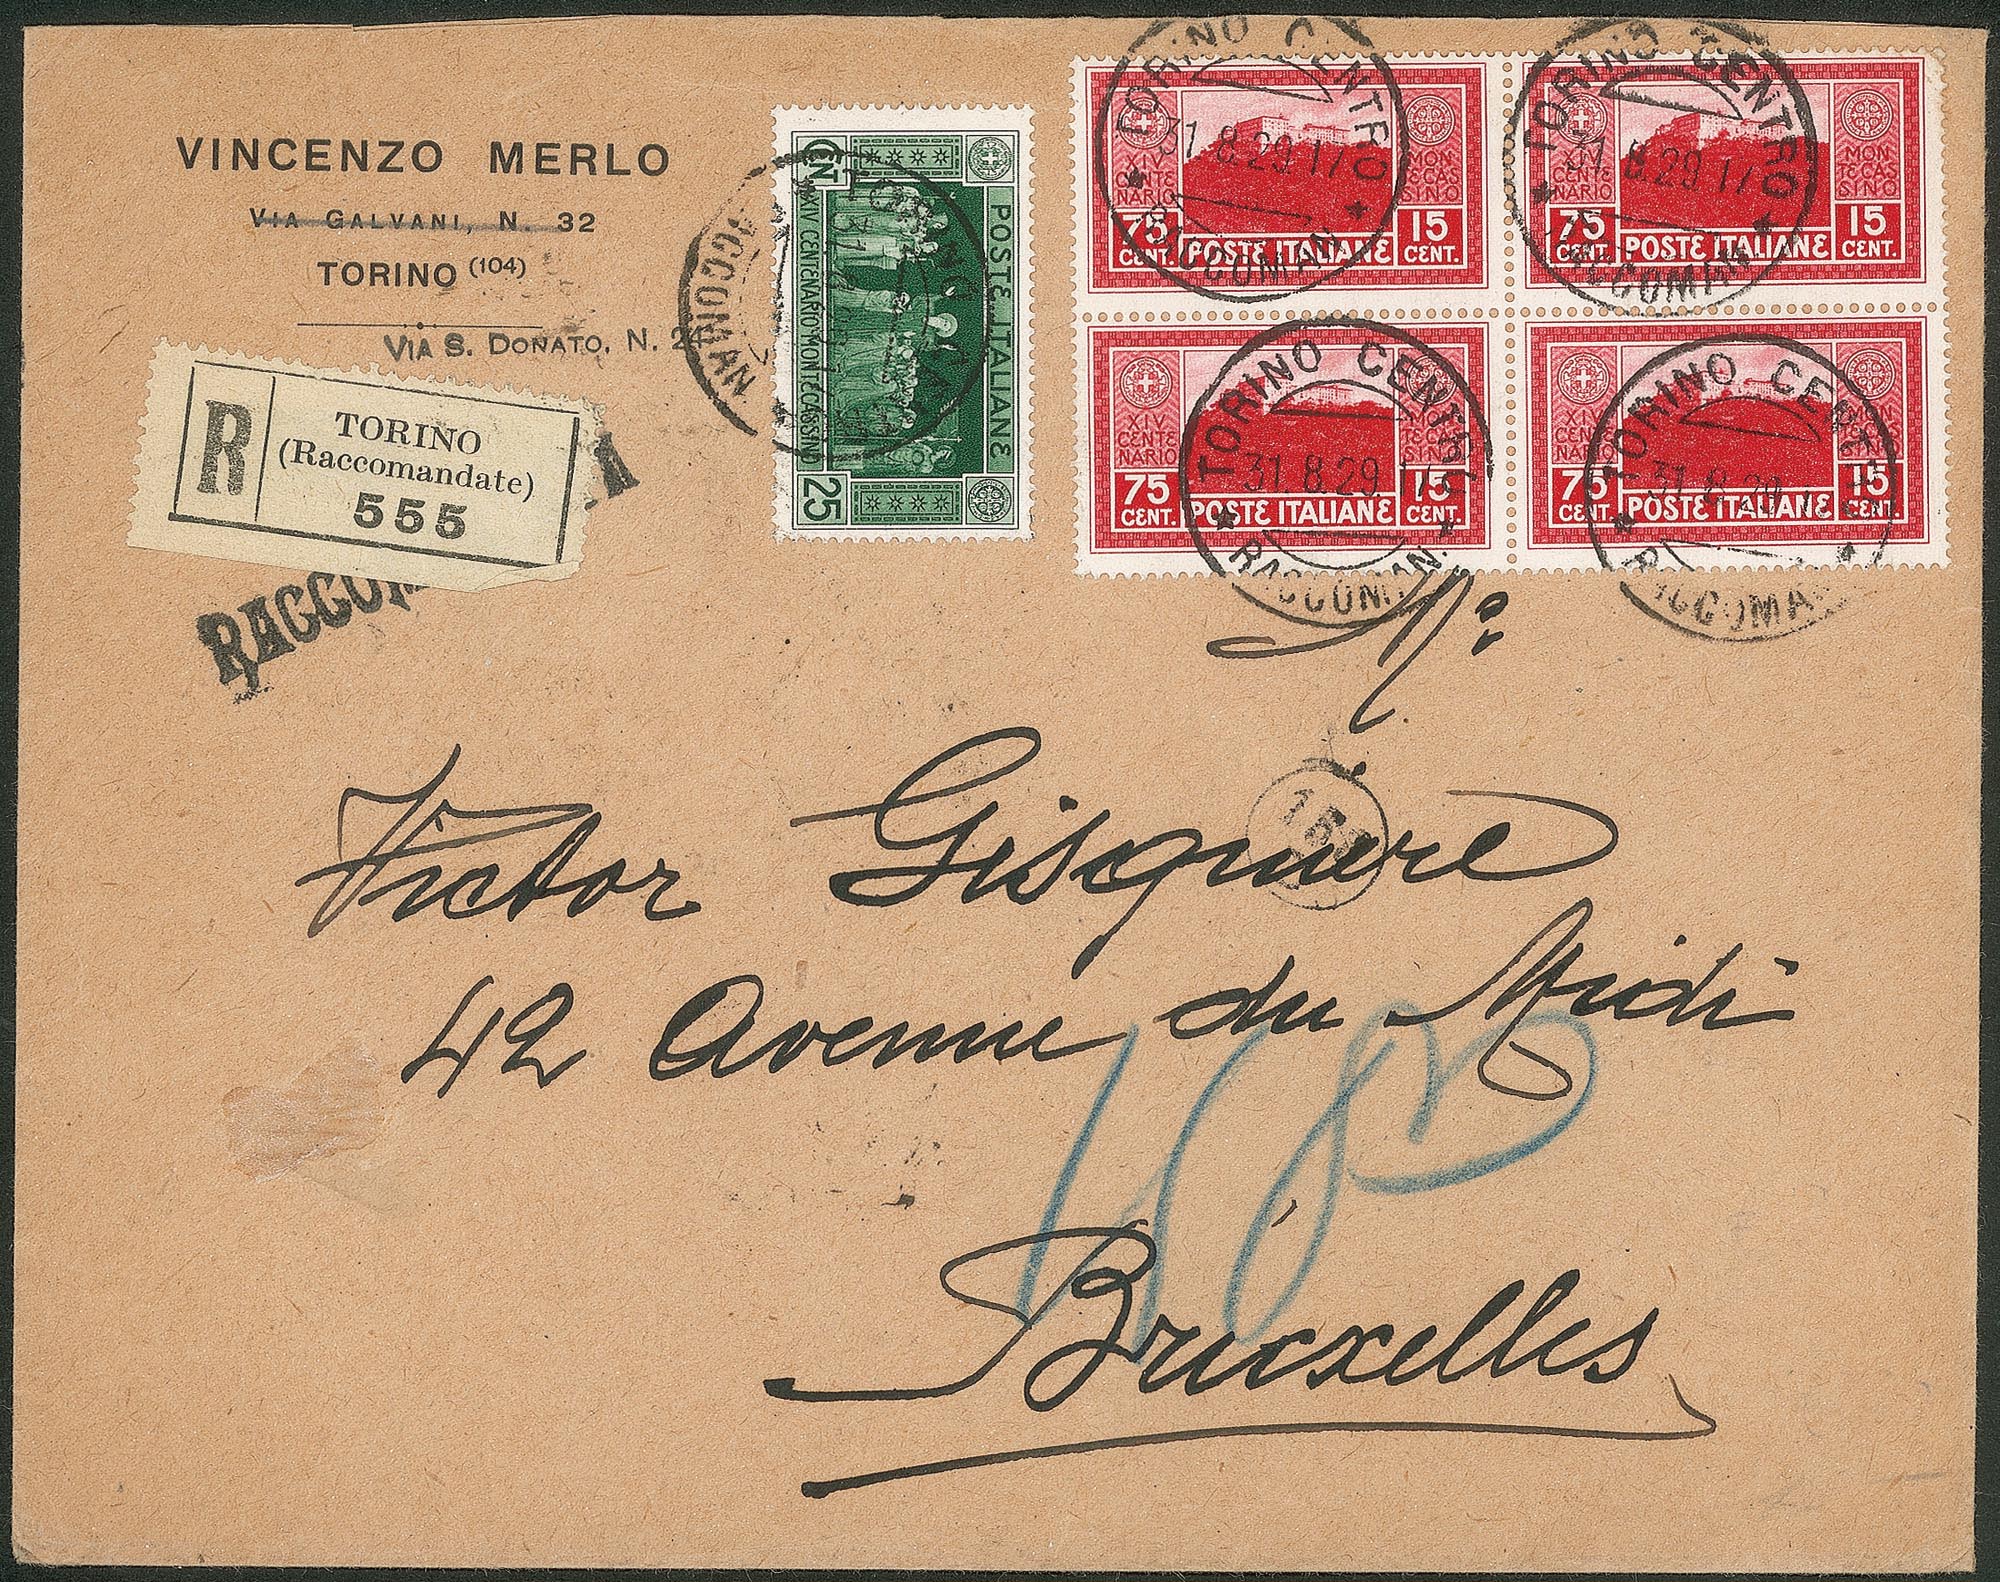 VINCENZO MERLO
VIA GALVANI, N. 32
TORINO (104)
VIA S. DONATO, N.
R
TORINO
(Raccomandate)
555
CENT
XIV CENTENARIO MONTECASSINO
25
POSTE ITALIANE
TORINO
RACCOMAN
XIV CENTENARIO
MONTECASSINO
75 CENT.
POSTE ITALIANE
15 CENT.
TORINO CENTRO
31.8.29.17
RACCOMAN
XIV CENTENARIO
MONTECASSINO
75 CENT.
POSTE ITALIANE
15 CENT.
TORINO CENTRO
31.8.29.17
RACCOMAN
XIV CENTENARIO
75 CENT.
POSTE ITALIANE
15 CENT.
TORINO CENTRO
31.8.29.17
RACCOMAN.
XIV CENTENARIO
75 CENT.
POSTE ITALIANE
15 CENT.
TORINO CENTRO
31.8.29
RACCOMA
Mr
Victor Gisquière
42 Avenue du Midi
Bruxelles